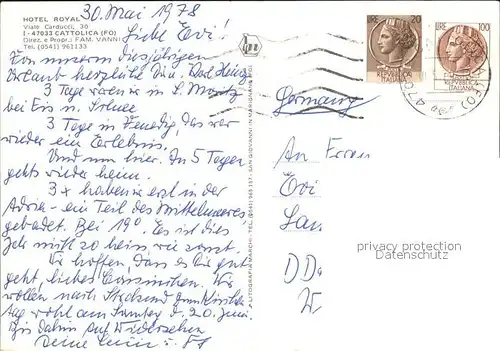 HOTEL ROYAL
Viale Carducci, 30
I - 47033 CATTOLICA (FO)
Direz. e Propr.: FAM. VANNI
Tel. (0541) 961133
30. Mai 1978
Liebe Evi!
Von unserm diesjährigen
Urlaub herzliche
3 Tage waren wir in S. Moritz
bei Eis u. Schnee
3 Tage in Venedig, das war
wieder ein Erlebnis.
Und nun hier. In 5 Tagen
gehts wieder heim.
3 x haben wir erst in der
Adria - ein Teil des Mittelmeeres
gebadet. Bei 19°. Es ist dies
Jahr nicht so heiss, wie sonst
Wir hoffen, dass es Dir gut
geht, liebes Wir
wollen nach
tag wohl am d. 20. Juni.
Bis dahin auf Wiedersehen
Deine u.
FOTOGRAFIA MARCHI - TEL. (0541) 945 157 - SAN GIOVANNI IN MARIGNANO
LIRE 20
REPUBBLICA
ITALIANA
LIRE 100
REPUBBLICA
ITALIANA
Germany
An Frau
Evi
privacy protection
Datenschutz